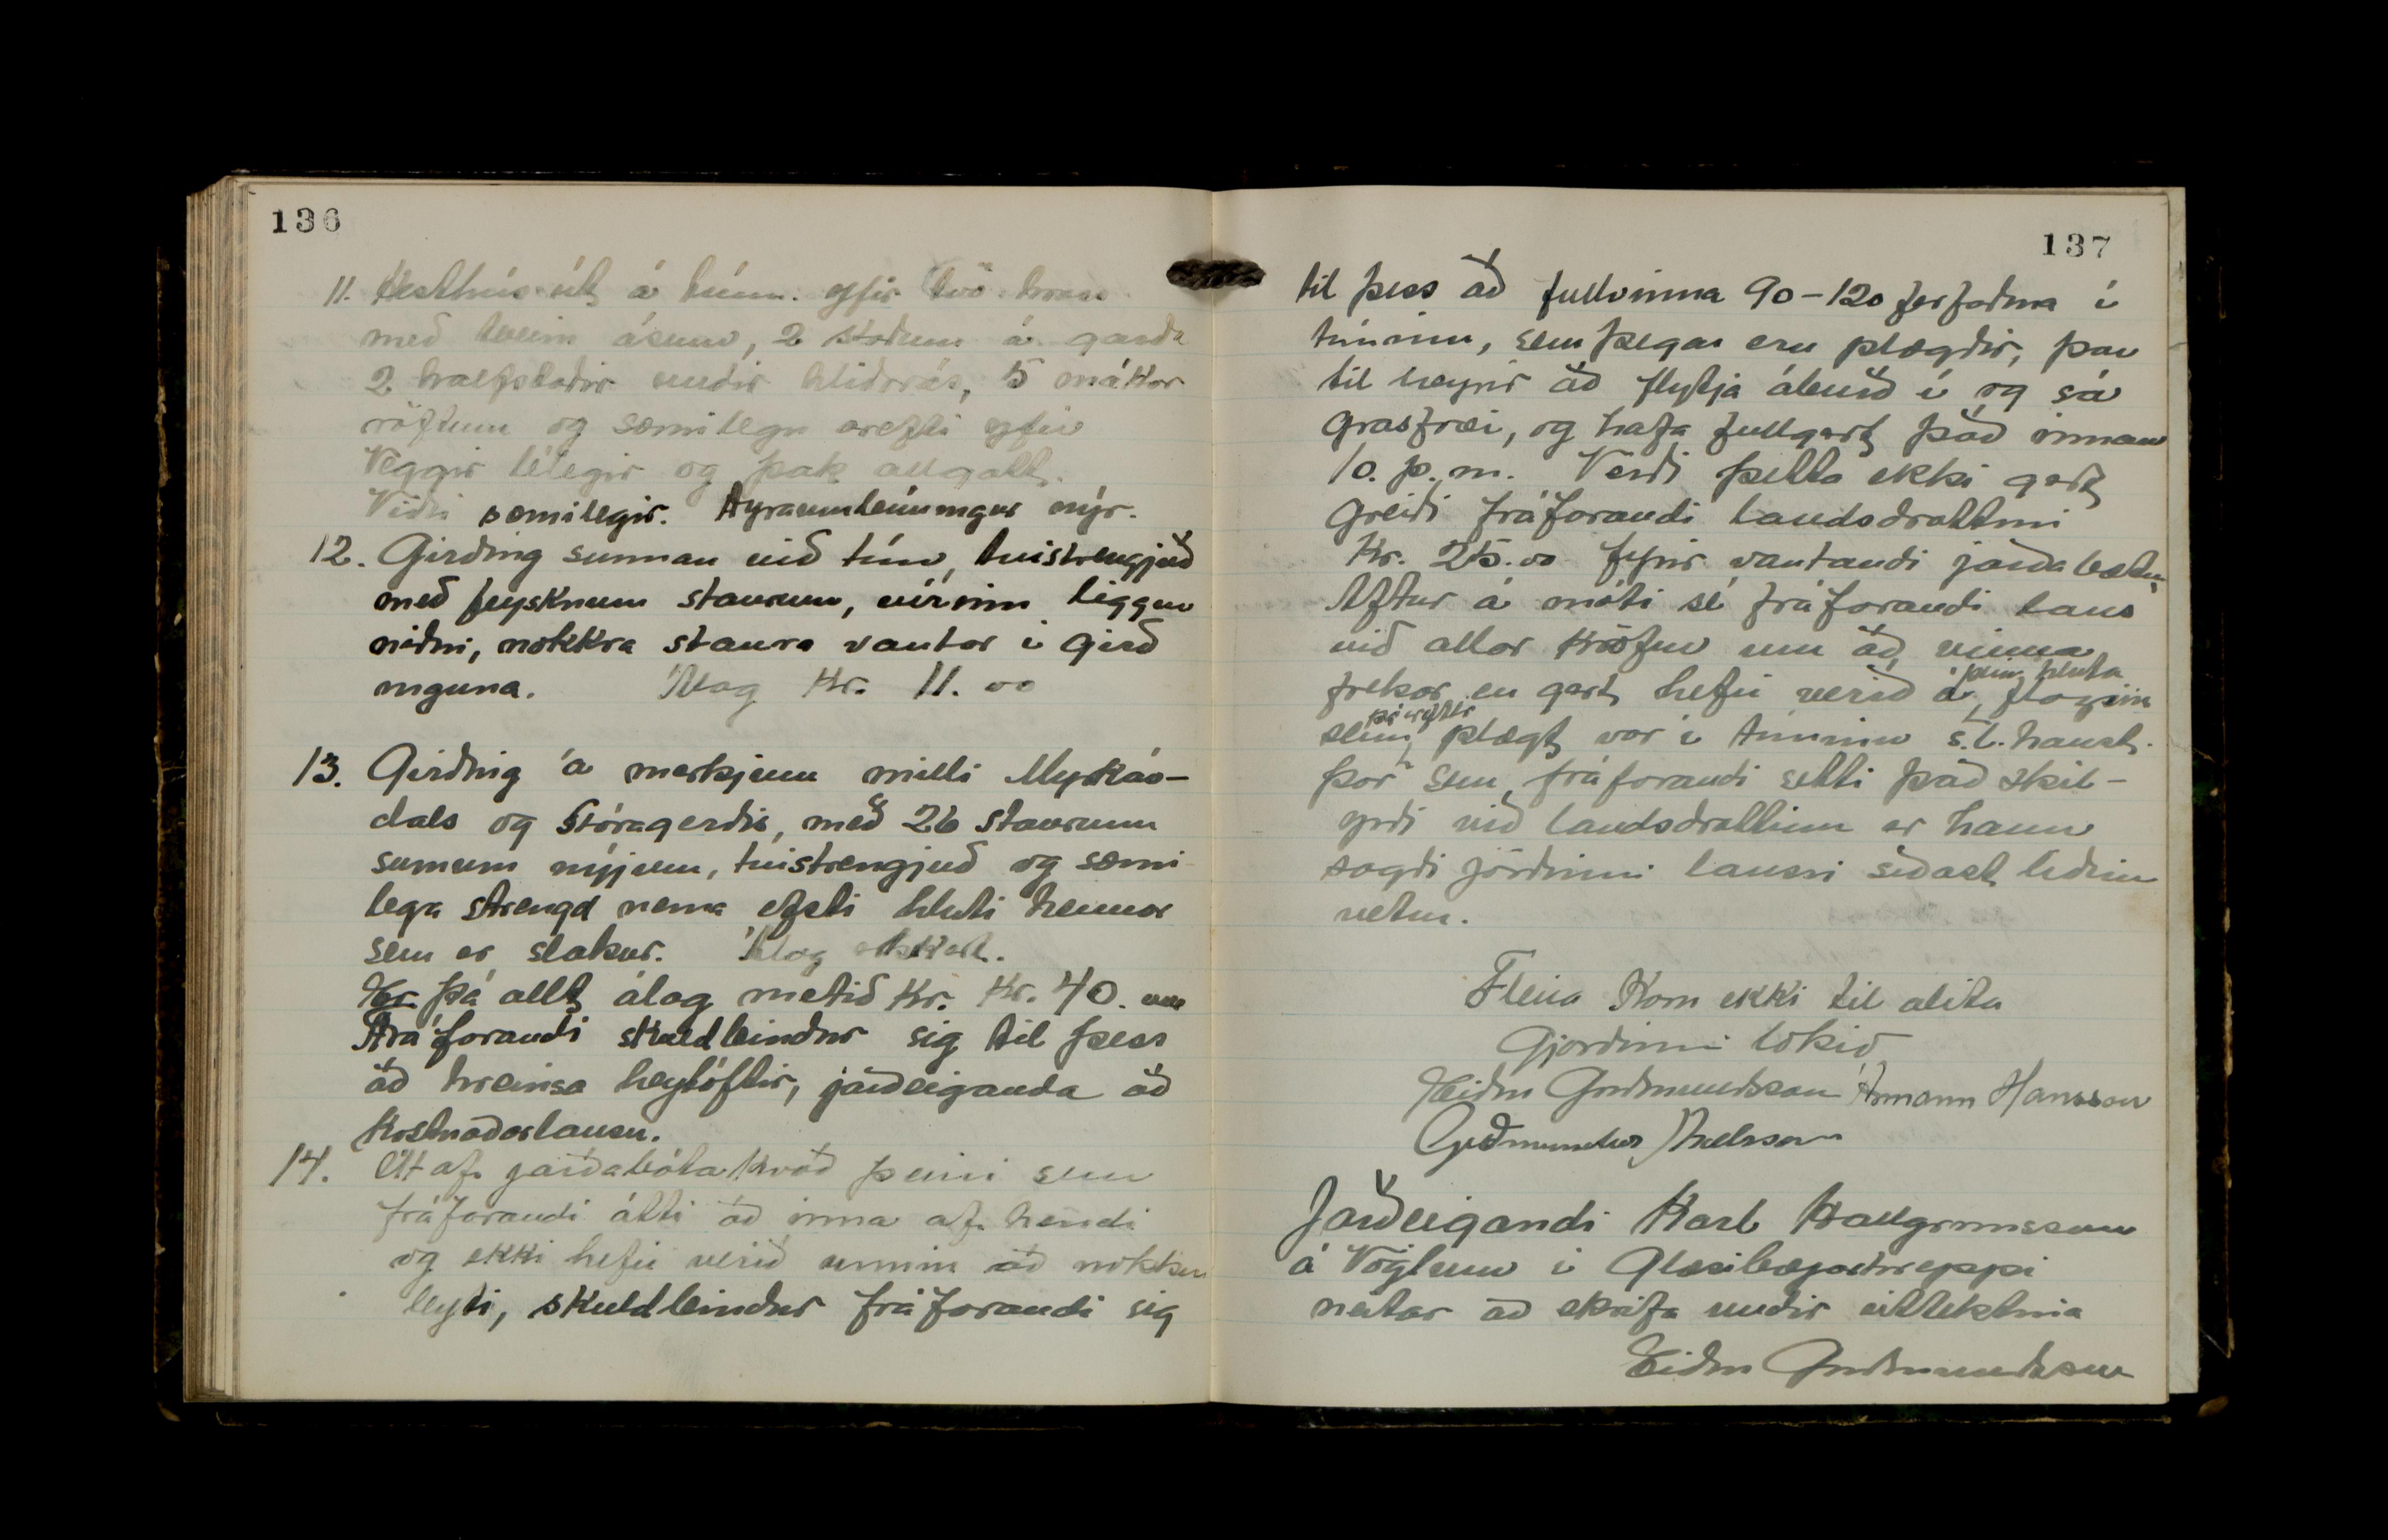 136
11. Hesthús út á túni. yfir tvö hross
með tveim ásum, 2 stoðum á garða
2 hálfstoðir undir hliðarás, 5 máttar
röftum og sæmilegu árefti yfir
Veggir lélegir og þak allgott.
Viðir sæmilegir. Dyraumbúningur nýr.
12. Girðing sunnan við tún, tvístrengjuð
með feysknum staurum, vírinn liggur
niðri, nokkra staura vantar í girð
inguna. Álag Kr. 11.00
13. Girðing á merkjum milli Myrkár-
dals og Stóragerðis, með 26 staurum
sumum nýjum, tvístrengjuð og sæmi
lega strengd nema efsti hluti hennar
sem er slakur. Álag ekkert.
Er þá allt álag metið Kr. Kr. 40.
Fráfarandi skuldbindur sig til þess
að hreinsa heytóftir, jarðeiganda að
kostnaðarlausu.
14. Út af jarðabóta kvöð þeirri sem
fráfarandi átti að inna af hendi
og ekki hefir verið unnin að nokkru
leyti, skuldbindur fráfarandi sig
137
til þess að fullvinna 90-120 ferfaðma í
túninu, sem þegar eru plægðir, þar
til heyrir að flytja áburð í og sá
grasfræi, og hafa fullgert það innan
10. p.m. Verði þetta ekki gert
greiði fráfarandi landsdrottni
Kr. 25.00 fyrir vantandi jarðabætur
Aftur á móti sé fráfarandi laus
við allar kröfur um að vinna
frekar en gert hefir verið á þeim hluta flagsins
sem plægt var í túninu s.l. haust.
þar sem fráfarandi setti það skil-
yrði við landsdrottinn er hann
sagði jörðinni lausri síðast liðinn
vetur.
Fleira kom ekki til álita
Gjörðinni lokið
Eiður Guðmundsson Ármann Hansson
Guðmundur
Jarðeigandi Karl Hallgrímsson
á Vöglum í Glæsibæjarhreppi
neitar að skrifa undir úttektina
Eiður Guðmundsson